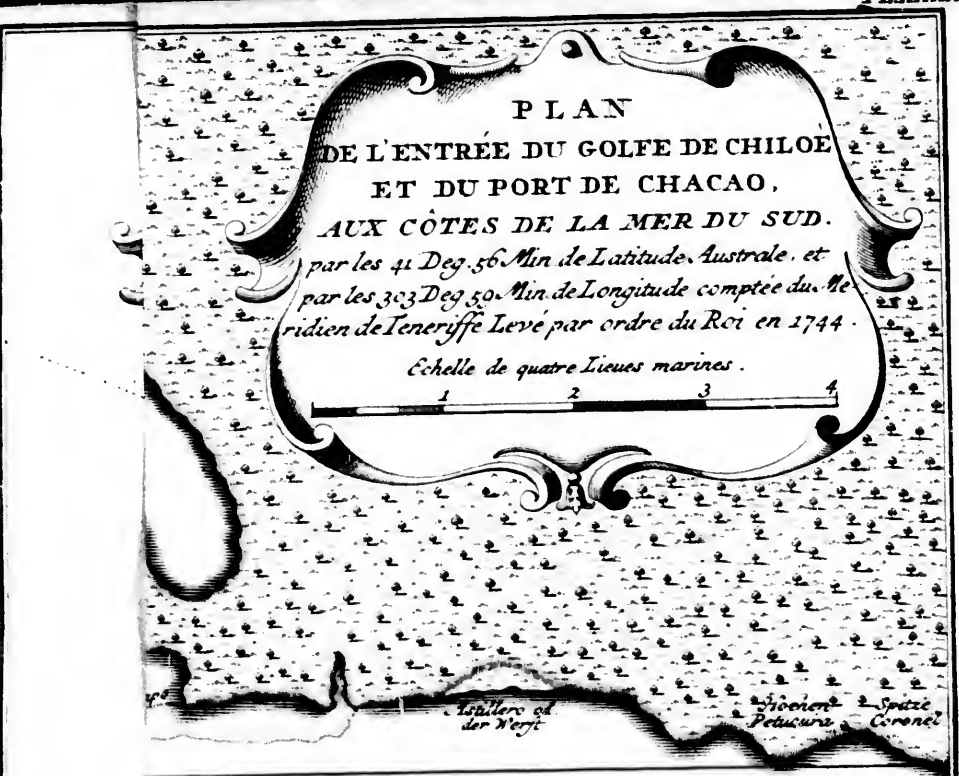 PLAN
DE L'ENTRÉE DU GOLFE DE CHILOË
ET DU PORT DE CHACAO,
AUX CÔTES DE LA MER DU SUD.
par les 41 Deg. 56 Min. de Latitude Australe, et
par les 303 Deg 50 Min. de Longitude comptée du Me-
ridien de Teneriffe Levé par ordre du Roi en 1744.
Echelle de quatre Lieues marines.
1 2 3 4
Astillero od
der Werft
Petucura
Spitze
Coronel